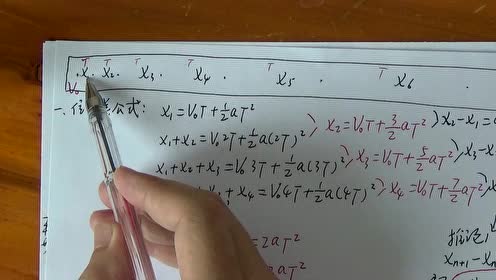 T T T T T T
X₁ · X₂ · X₃ · X₄ · X₅ · X₆
V₀
公式: X₁=V₀T+½aT²
X₁+X₂=V₀2T+½a(2T)² } X₂=V₀T+3/2aT² } X₂-X₁=a
X₁+X₂+X₃=V₀3T+½a(3T)² } X₃=V₀T+5/2aT² } X₃-X
X₃+X₄=V₀4T+½a(4T)² } X₄=V₀T+7/2aT²
=2aT²
Xₙ₊₁-Xₙ
aT²